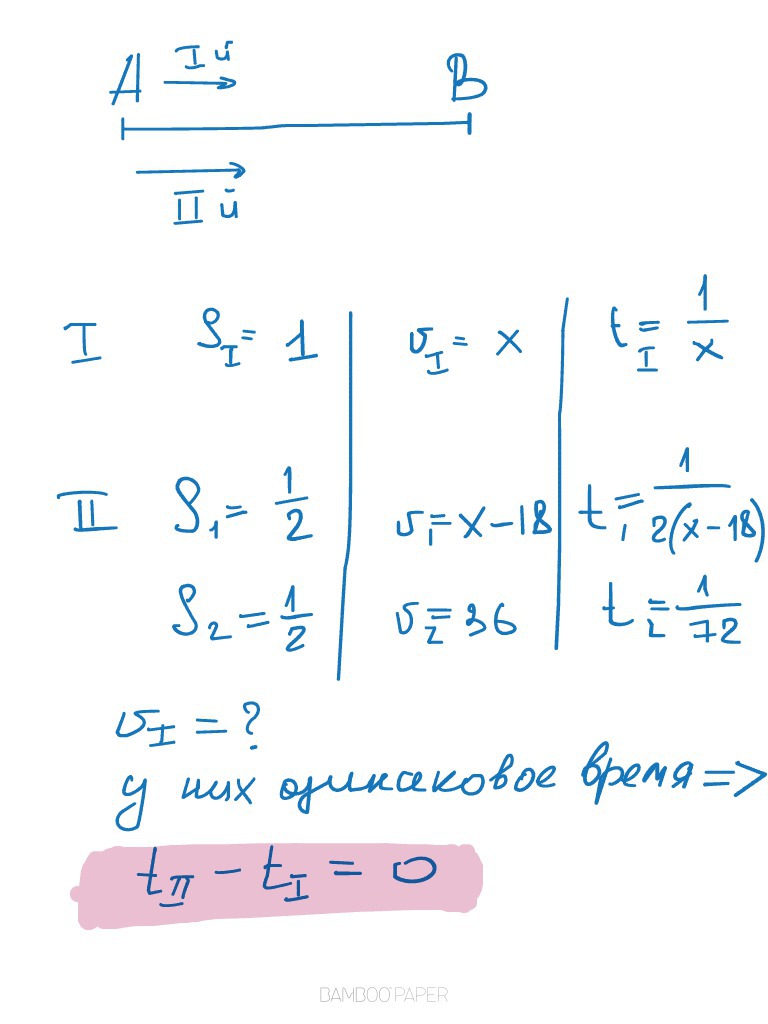 I й
A B
II й
I S_I = 1 v_I = x t_I = 1/x
II S_1 = 1/2 v_1 = x - 18 t_1 = 1/(2(x - 18))
S_2 = 1/2 v_2 = 36 t_2 = 1/72
v_I = ?
у них одинаковое время =>
t_II - t_I = 0
BAMBOO PAPER